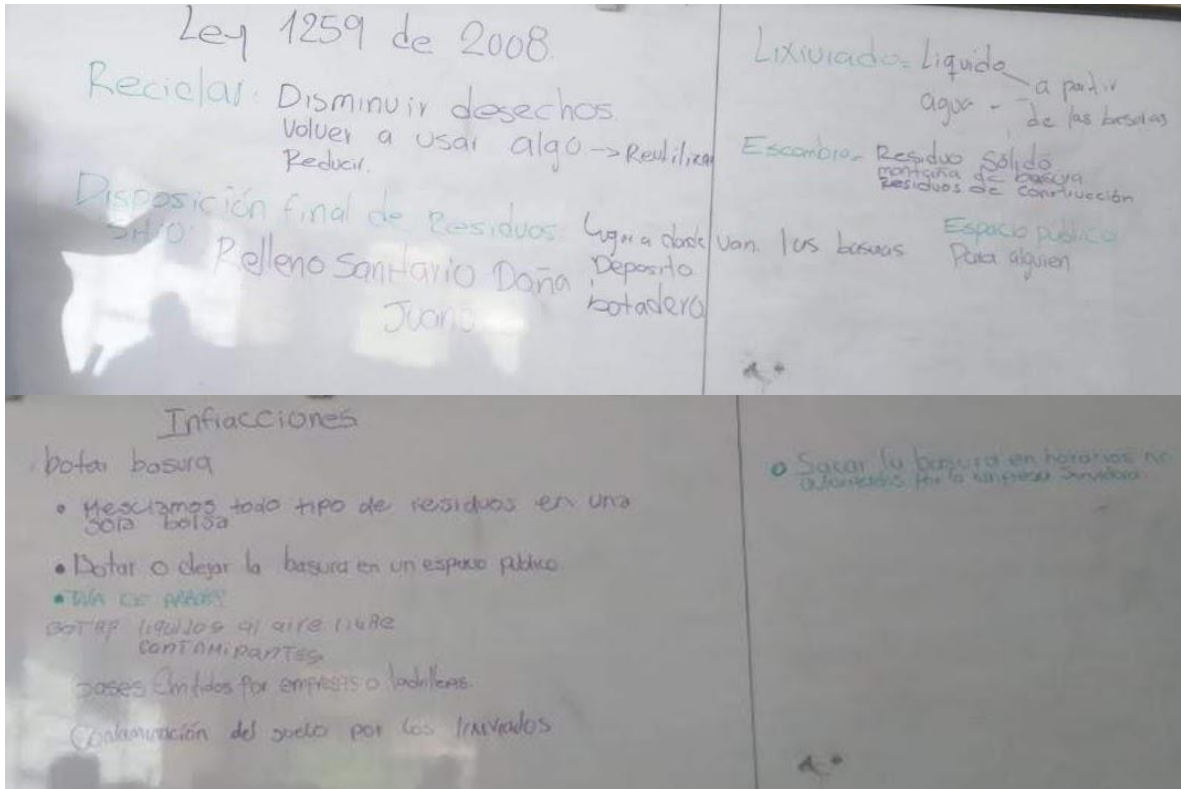 Ley 1259 de 2008.
Reciclar: Disminuir desechos.
Volver a usar algo -> Reutilizar
Reducir.
Disposición final de Residuos Lugar a donde van las basuras
Deposito
botadero
Relleno Sanitario Doña
Juana
Lixiviado= Liquido
a partir
agua - de las basuras
Escombro= Residuo Sólido
montaña de basura
Residuos de Construcción
Espacio público
Para alguien
Infracciones
botar basura
• Mesclamos todo tipo de residuos en una
sola bolsa
• Botar o dejar la basura en un espacio público
• TALA DE
BOTAR liquidos al aire libre
CONTAMINANTES
Gases Emitidos por empresas o ladrilleras.
Contaminación del suelo por los lixiviados
o Sacar la basura en horarios no
autorizados por la empresa